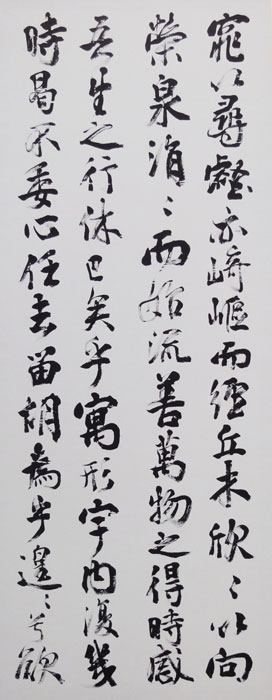 窕以尋壑亦崎嶇而經丘木欣〻以向
榮泉涓〻而始流善萬物之得時感
吾生之行休已矣乎寓形宇内復幾
時曷不委心任去留胡為乎遑〻兮欲